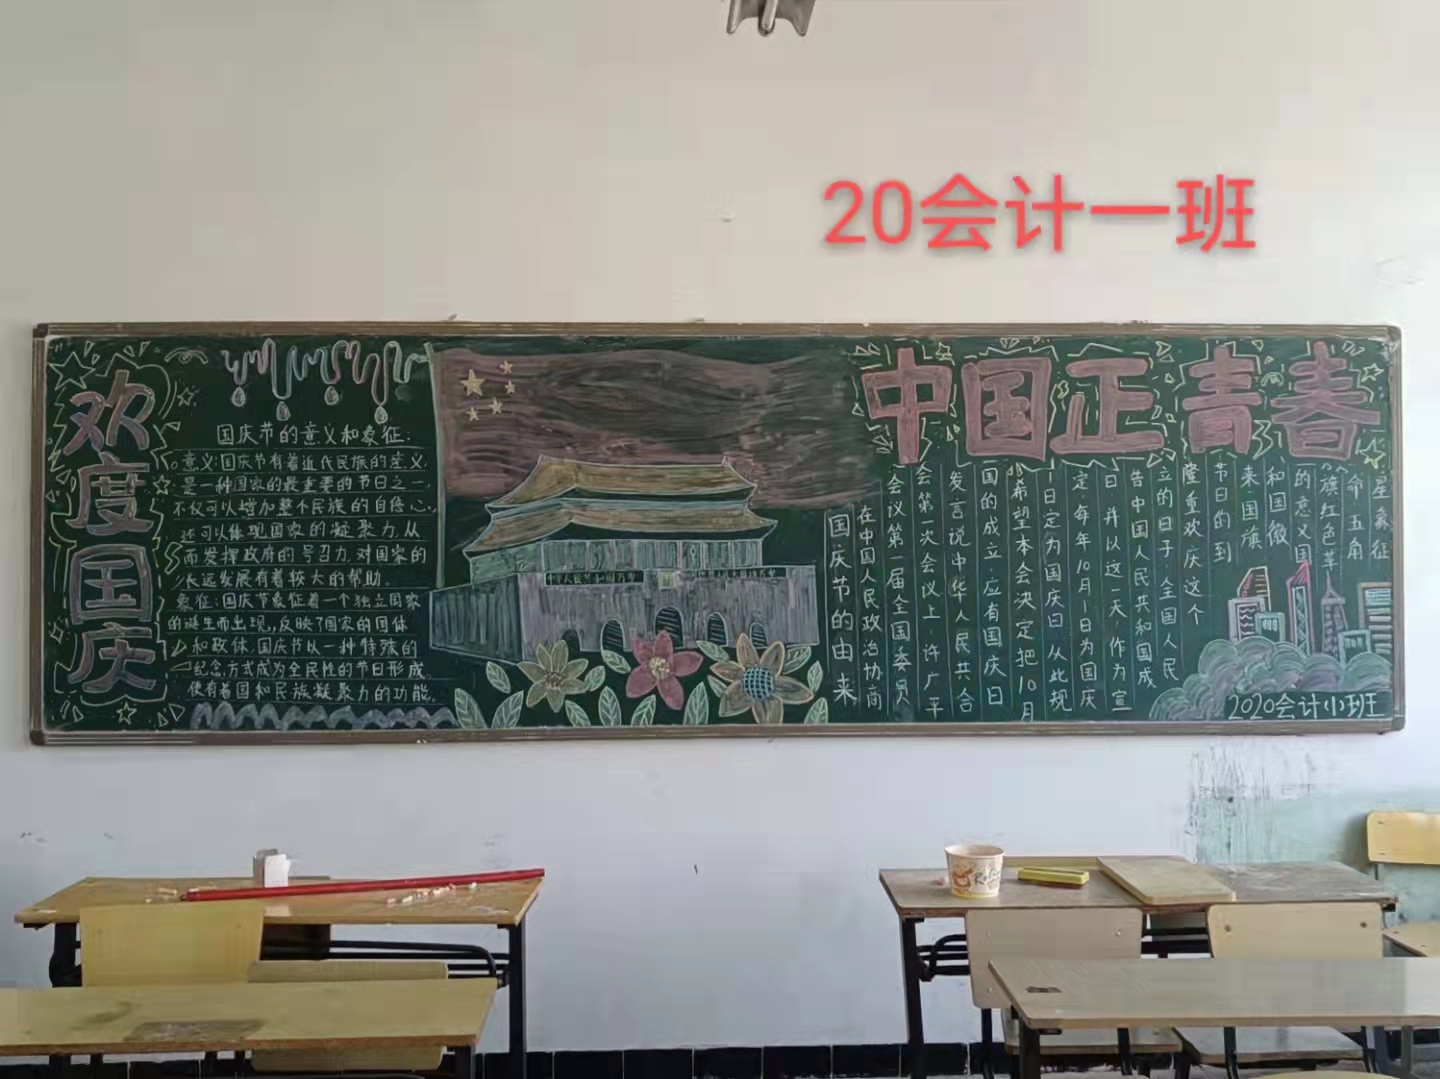 20会计一班
欢度国庆
国庆节的意义和象征:
意义:国庆节有着近代民族的定义,
是一种国家的最重要的节日之一,
不仅可以增加整个民族的自信心,
还可以体现国家的凝聚力,从
而发挥政府的号召力,对国家的
长远发展有着较大的帮助.
象征:国庆节象征着一个独立国家
的诞生而出现,,反映了国家的国体
和政体.国庆节以一种特殊的
纪念方式成为全民性的节日形成,
使有着国和民族凝聚力的功能.
中国正青春
国庆节的由来
在中国人民政治协商
会议第一届全国委员
会第一次会议上,许广平
发言说中华人民共合
国的成立,应有国庆日
希望本会决定把10月
1日定为国庆日.从此规
定,每年10月1日为国庆
日,并以这一天,作为宣
告中国人民共和国成
立的日子.全国人民
隆重欢庆这个
节日的到
来.国旗
和国徽
的意义国
旗红色革
命,五角
星象征
2020会计小班